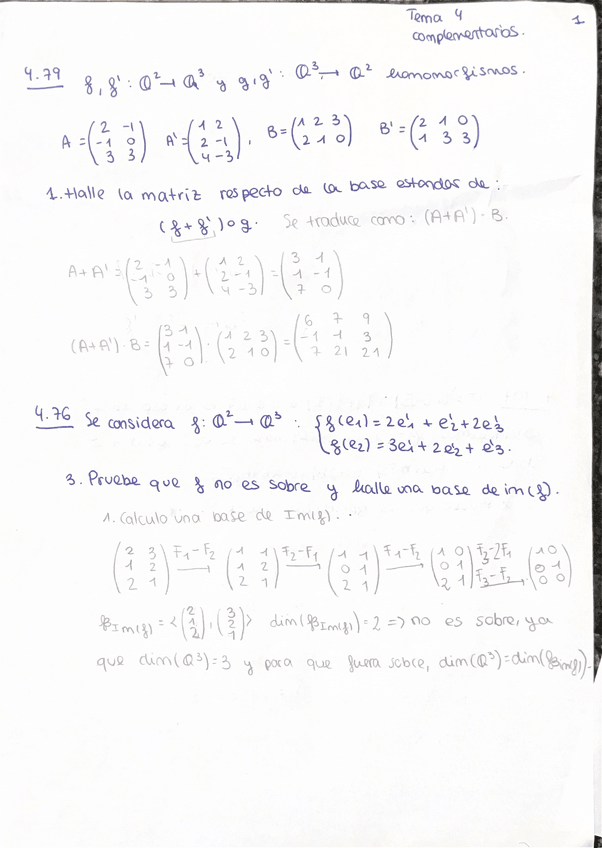 Tema 4
complementarios.
1
4.79 f, f' : Q² → Q³ y g, g' : Q³ → Q² homomorfismos.
A = (2 -1; -1 0; 3 3) A' = (1 2; 2 -1; 4 -3), B = (1 2 3; 2 1 0) B' = (2 1 0; 1 3 3)
1. Halle la matriz respecto de la base estandar de :
(f + f') o g. Se traduce como : (A+A') · B.
A+A' = (2 -1; -1 0; 3 3) + (1 2; 2 -1; 4 -3) = (3 1; 1 -1; 7 0)
(A+A') · B = (3 1; 1 -1; 7 0) · (1 2 3; 2 1 0) = (6 7 9; -1 1 3; 7 21 21)
4.76 Se considera f : Q² → Q³ : { f(e1) = 2e'1 + e'2 + 2e'3
f(e2) = 3e'1 + 2e'2 + e'3.
3. Pruebe que f no es sobre y halle una base de im(f).
1. Calculo una base de Im(f).
(2 3; 1 2; 2 1) F1-F2 → (1 1; 1 2; 2 1) F2-F1 → (1 1; 0 1; 2 1) F1-F2 → (1 0; 0 1; 2 1) F3-2F1 F3-F2 → (1 0; 0 1; 0 0)
βIm(f) = <(2; 1; 2), (3; 2; 1)> dim(βIm(f)) = 2 => no es sobre, ya
que dim(Q³) = 3 y para que fuera sobre, dim(Q³) = dim(βim(f)).